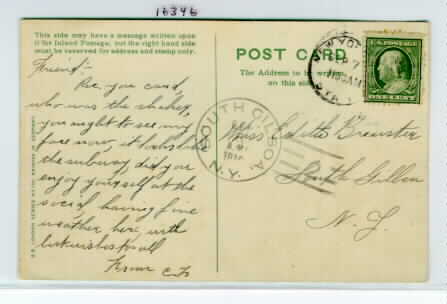 16346
This side may have a message written upon
it for Inland Postage, but the right hand side
must be reserved for address and stamp only.
POST CARD
The Address to be written
on this side
Friend:-
Rec. you card,
who was the shakey,
you ought to see my
face now, it looks like
the subway, did you
enjoy yourself at the
social, having fine
weather here, with
best wishes to all
From C.F.
NEW YORK
SOUTH GILBOA, N.Y.
Miss Edith Brewster
South Gilboa
N. Y.